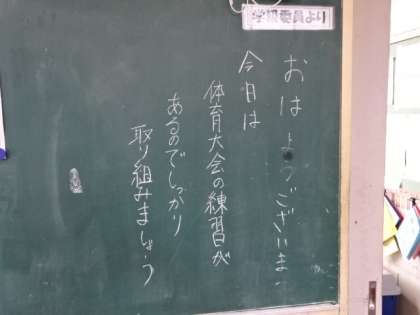 学級委員より
おはようございます
今日は
体育大会の練習が
あるのでしっかり
取り組みましょう